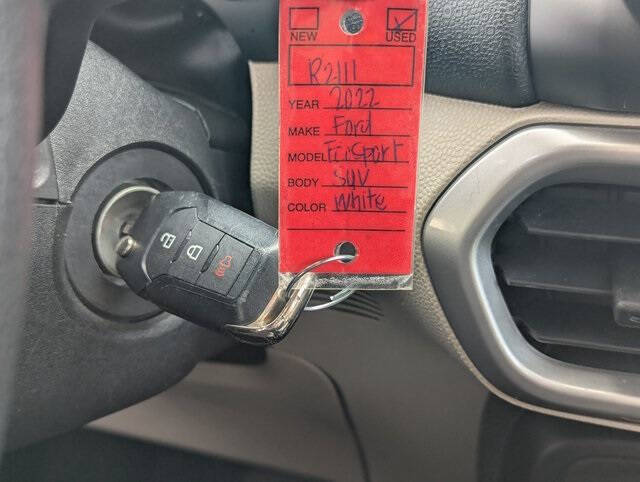 NEW USED
R2111
YEAR 2022
MAKE Ford
MODEL EcoSport
BODY SUV
COLOR White